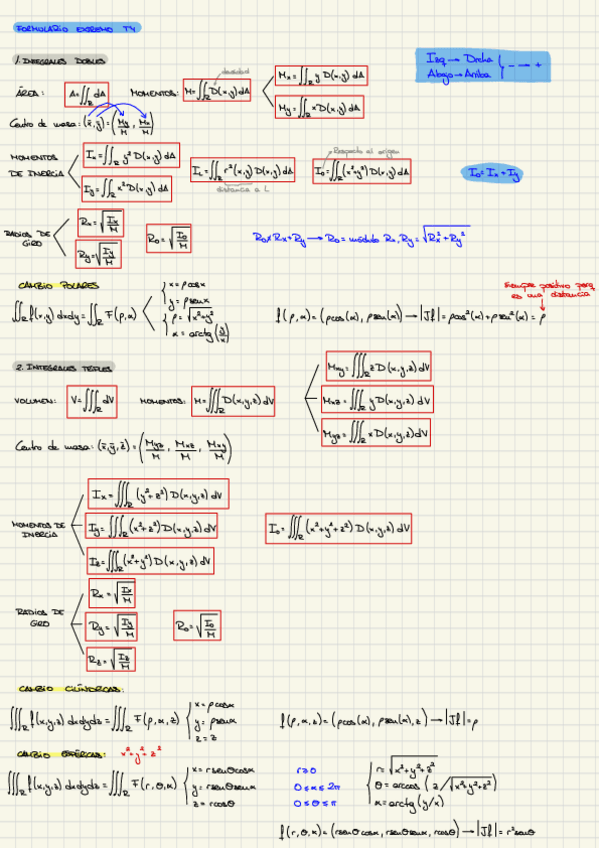 FORMULARIO EXTREMO T4
Izq → Dcha
Abajo → Arriba } - → +
1. INTEGRALES DOBLES
densidad
ÁREA: A=∬_R dA MOMENTOS: M=∬_R D(x,y)dA
Mx=∬_R y D(x,y) dA
My=∬_R x D(x,y) dA
Centro de masa: (x̄,ȳ)=(My/M, Mx/M)
MOMENTOS DE INERCIA
Ix=∬_R y² D(x,y) dA
Iy=∬_R x² D(x,y) dA
I_L=∬_R r²(x,y) D(x,y) dA
distancia a L
Respecto al origen
I₀=∬_R (x²+y²) D(x,y) dA
I₀=Ix+Iy
RADIOS DE GIRO
Rx=√(Ix/M)
Ry=√(Iy/M)
R₀=√(I₀/M)
R₀≠Rx+Ry → R₀= módulo Rx,Ry=√(Rx²+Ry²)
CAMBIO POLARES
∬_R f(x,y) dxdy=∬_R F(ρ,α)
x=ρcosα
y=ρsenα
ρ=√(x²+y²)
α=arctg(y/x)
Siempre positivo porq
es una distancia
f(ρ,α)=(ρcos(α), ρsen(α)) → |Jf|=ρcos²(α)+ρsen²(α)=ρ
2. INTEGRALES TRIPLES
VOLUMEN: V=∭_R dV MOMENTOS: M=∭_R D(x,y,z) dV
Mxy=∭_R z D(x,y,z) dV
Mxz=∭_R y D(x,y,z) dV
Myz=∭_R x D(x,y,z) dV
Centro de masa: (x̄,ȳ,z̄)=(Myz/M, Mxz/M, Mxy/M)
MOMENTOS DE INERCIA
Ix=∭_R (y²+z²) D(x,y,z) dV
Iy=∭_R (x²+z²) D(x,y,z) dV
Iz=∭_R (x²+y²) D(x,y,z) dV
I₀=∭_R (x²+y²+z²) D(x,y,z) dV
RADIOS DE GIRO
Rx=√(Ix/M)
Ry=√(Iy/M)
Rz=√(Iz/M)
R₀=√(I₀/M)
CAMBIO CILÍNDRICAS:
∭_R f(x,y,z) dxdydz=∭_R F(ρ,α,z)
x=ρcosα
y=ρsenα
z=z
f(ρ,α,z)=(ρcos(α), ρsen(α), z) → |Jf|=ρ
CAMBIO ESFÉRICAS: x²+y²+z²
∭_R f(x,y,z) dxdydz=∭_R F(r,θ,α)
x=rsenθcosα
y=rsenθsenα
z=rcosθ
r≥0
0≤α≤2π
0≤θ≤π
r=√(x²+y²+z²)
θ=arccos(z/√(x²+y²+z²))
α=arctg(y/x)
f(r,θ,α)=(rsenθcosα, rsenθsenα, rcosθ) → |Jf|=r²senθ